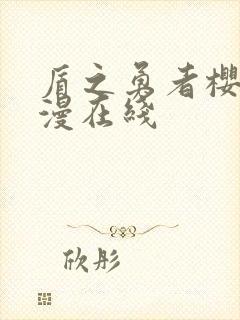 盾之勇者樱
漫在线
欣彤